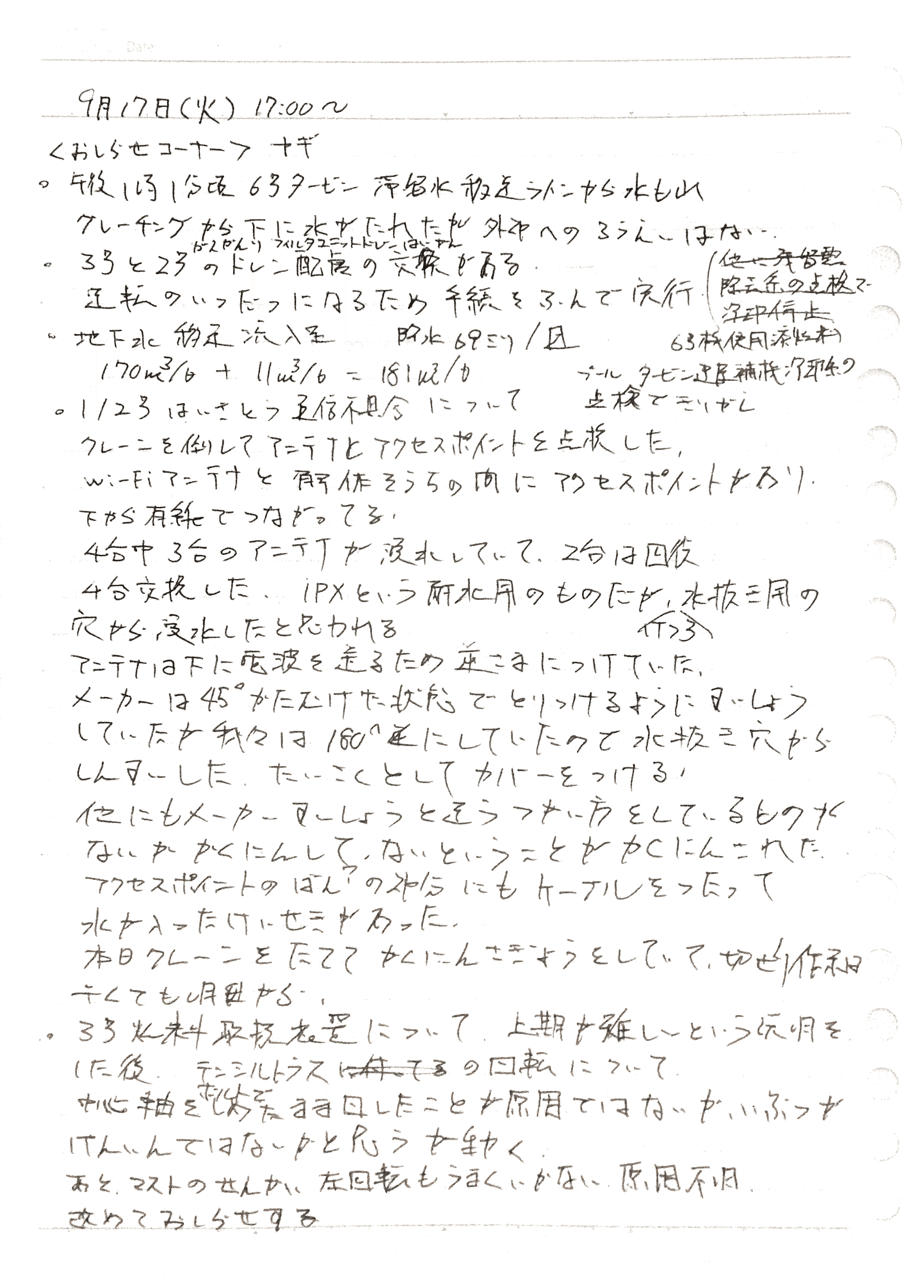 Date
9月17日(火) 17:00〜
<おしらせコーナー> ナギ
。午後1時1分頃 6号タービン 滞留水移送ラインから水もれ
グレーチングから下に水がたれたが 外部へのろうえいはない.
ガスかんり フィルタユニットドレンはいかん
。3号と2号のドレン配管の交換がある.
逆転のいったつになるため 手続をふんで実行.
(他に残留熱
除去系の点検で
冷却停止
6号機使用済燃料
プール タービン 補機冷却系の
点検できりかえ
。地下水 移送 流入量 降水69ミリ/日
170m³/日 + 11m³/日 = 181m³/日
。1/2号はいきとう 通信不具合について
クレーンを倒してアンテナとアクセスポイントを点検した.
Wi-Fiアンテナと 操作そうちの間に アクセスポイントがあり.
下から有線でつながってる.
4台中3台のアンテナが 浸水していて、2台は回復
4台交換した. IPXという耐水用のものだが,水抜き用の
穴から浸水したと思われる
アンテナは下に電波を送るため 逆さまにつけていた.
メーカーは45°かたむけた状態でとりつけるようにすいしょう
していたが 我々は180°逆にしていたので 水抜き穴から
しんすいした. たいさくとして カバーをつける.
他にもメーカーすいしょうと違うつかい方をしているものが
ないか かくにんして、ないということが かくにんされた
アクセスポイントのばん?の部分にもケーブルをつたって
水が入ったけいせきがあった.
本日クレーンをたてて かくにんさぎょうをしていて,切せ 作業は
早くても明日から.
。3号燃料取扱装置について. 上期が難しいという説明を
した後. テンシルトラスに付いてるの回転について
ボルトで
中心軸をしめたまま回したことが原因ではないか,いぶつが
げんいんではないかと思うが動く.
あと、マストのせんかい 左回転もうまくいかない. 原因不明.
改めておしらせする